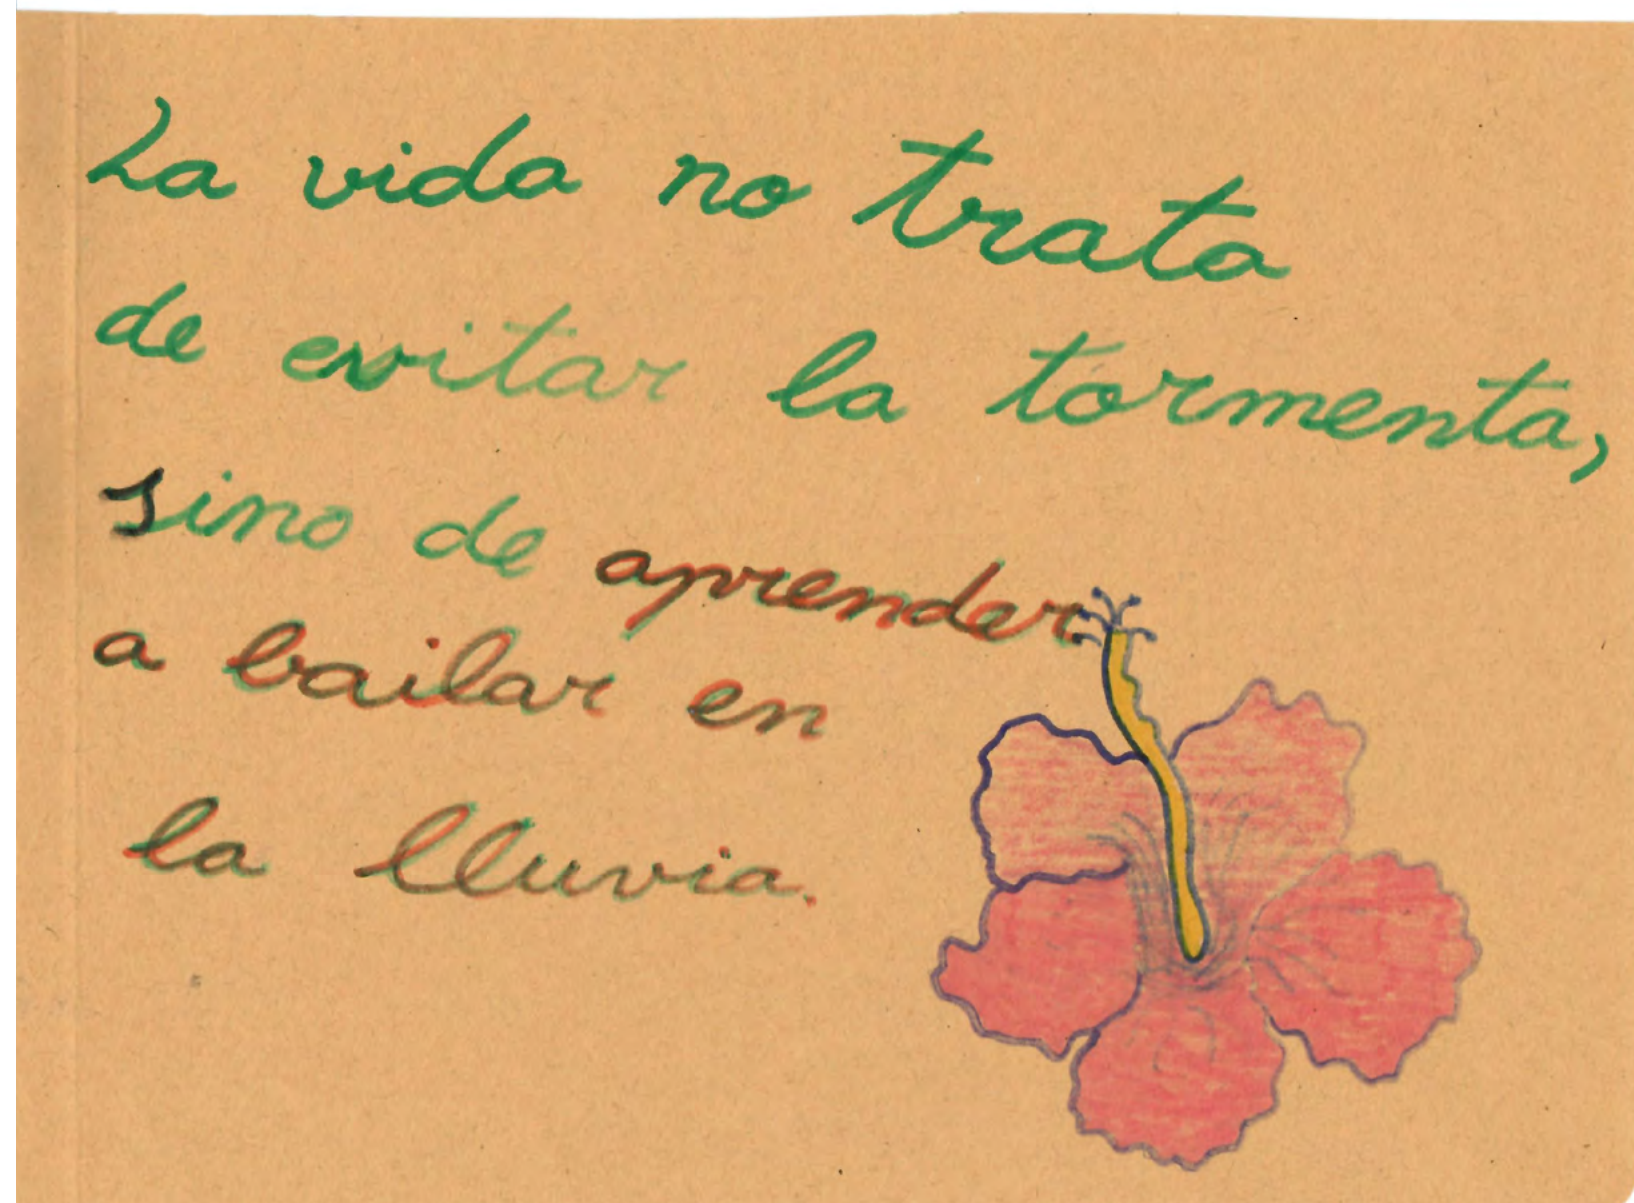 La vida no trata
de evitar la tormenta,
sino de aprender
a bailar en
la lluvia.